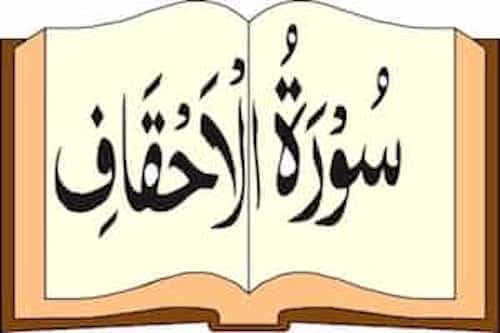 سُوْرَةُ الْاَحْقَافِ